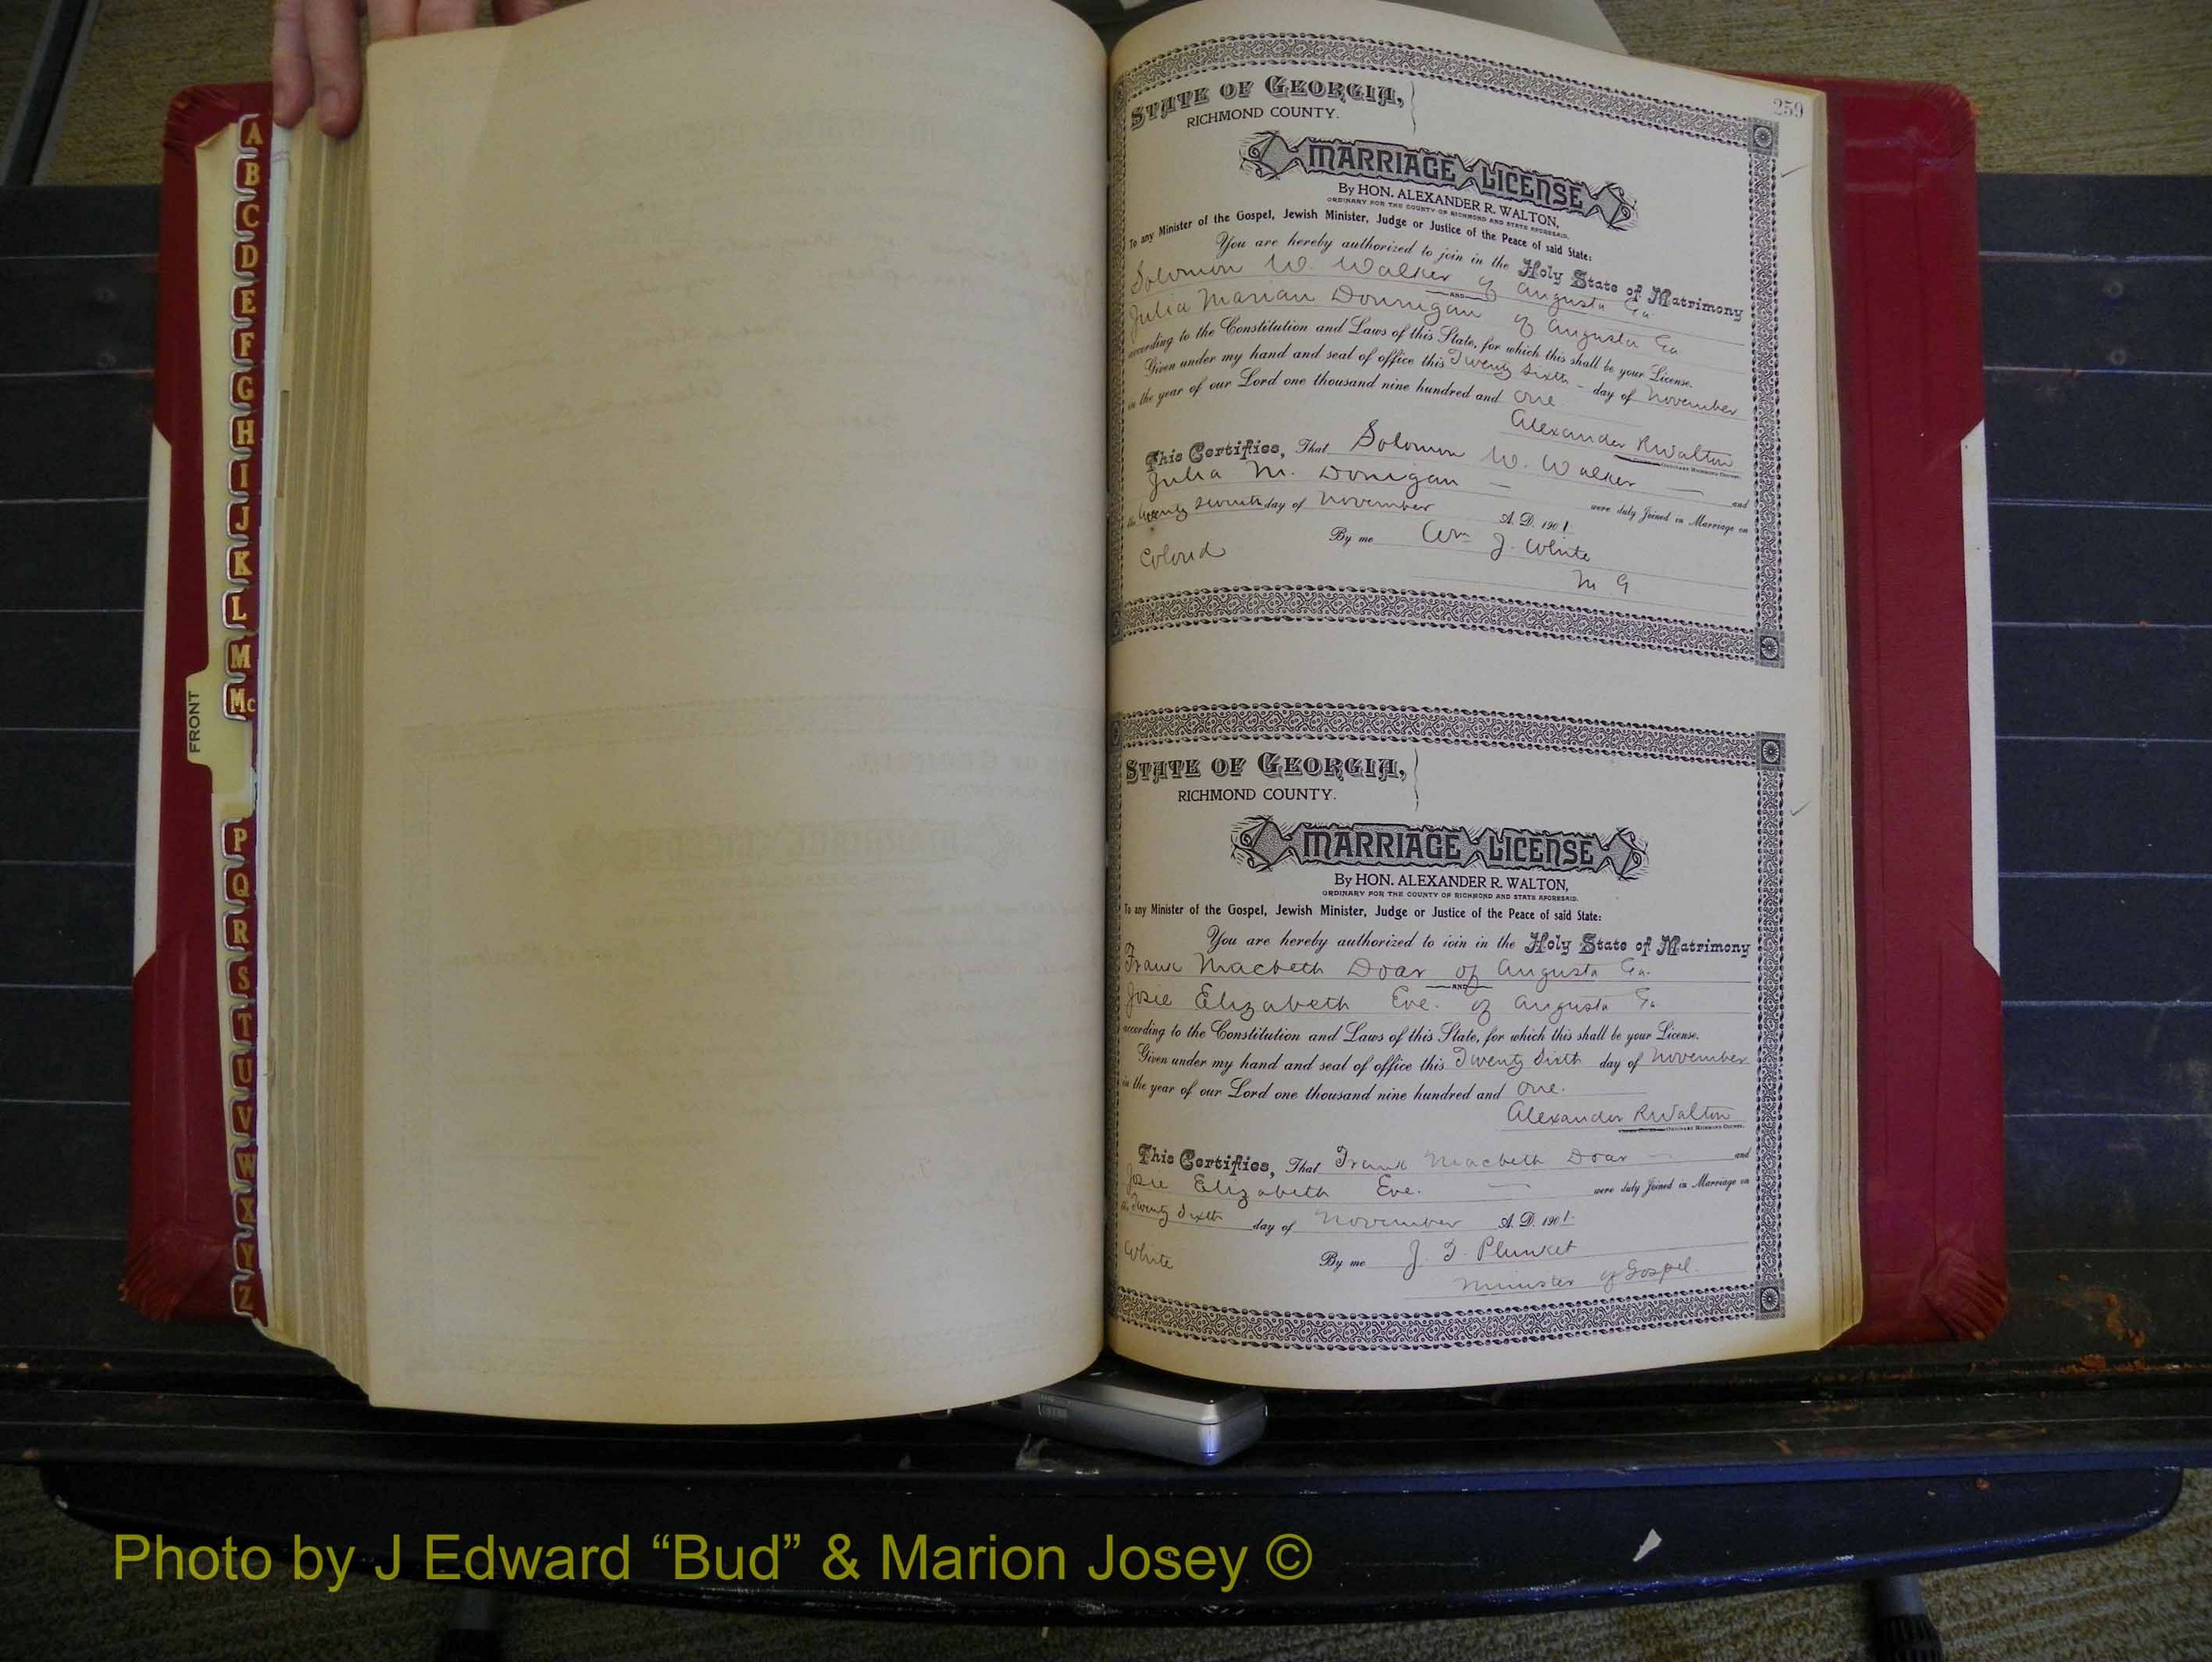 A
B
C
D
E
F
G
H
I
J
K
L
M
Mc
FRONT
P
Q
R
S
T
U
V
W
X
Y
Z
259
STATE OF GEORGIA,
RICHMOND COUNTY.
MARRIAGE LICENSE
By HON. ALEXANDER R. WALTON,
ORDINARY FOR THE COUNTY OF RICHMOND AND STATE AFORESAID.
To any Minister of the Gospel, Jewish Minister, Judge or Justice of the Peace of said State:
You are hereby authorized to join in the Holy State of Matrimony
Solomon W. Walker of Augusta Ga.
AND
Julia Marian Donnigan of Augusta Ga
according to the Constitution and Laws of this State, for which this shall be your License.
Given under my hand and seal of office this Twenty Sixth - day of November
in the year of our Lord one thousand nine hundred and One
Alexander R Walton
ORDINARY RICHMOND COUNTY.
This Certifies, That Solomon W. Walker — and
Julia M. Donigan — were duly Joined in Marriage on
the twenty seventh day of November A. D. 1901.
Colord By me Wm J. White
M G
STATE OF GEORGIA,
RICHMOND COUNTY.
MARRIAGE LICENSE
By HON. ALEXANDER R. WALTON,
ORDINARY FOR THE COUNTY OF RICHMOND AND STATE AFORESAID.
To any Minister of the Gospel, Jewish Minister, Judge or Justice of the Peace of said State:
You are hereby authorized to join in the Holy State of Matrimony
Frank Macbeth Doar of Augusta Ga.
AND
Josie Elizabeth Eve. of Augusta Ga
according to the Constitution and Laws of this State, for which this shall be your License.
Given under my hand and seal of office this Twenty Sixth day of November
in the year of our Lord one thousand nine hundred and One.
Alexander R Walton
ORDINARY RICHMOND COUNTY.
This Certifies, That Frank Macbeth Doar — and
Josie Elizabeth Eve. — were duly Joined in Marriage on
the Twenty Sixth day of November A. D. 1901.
White By me J. T. Plunket
Minister of Gospel.
Photo by J Edward “Bud” & Marion Josey ©